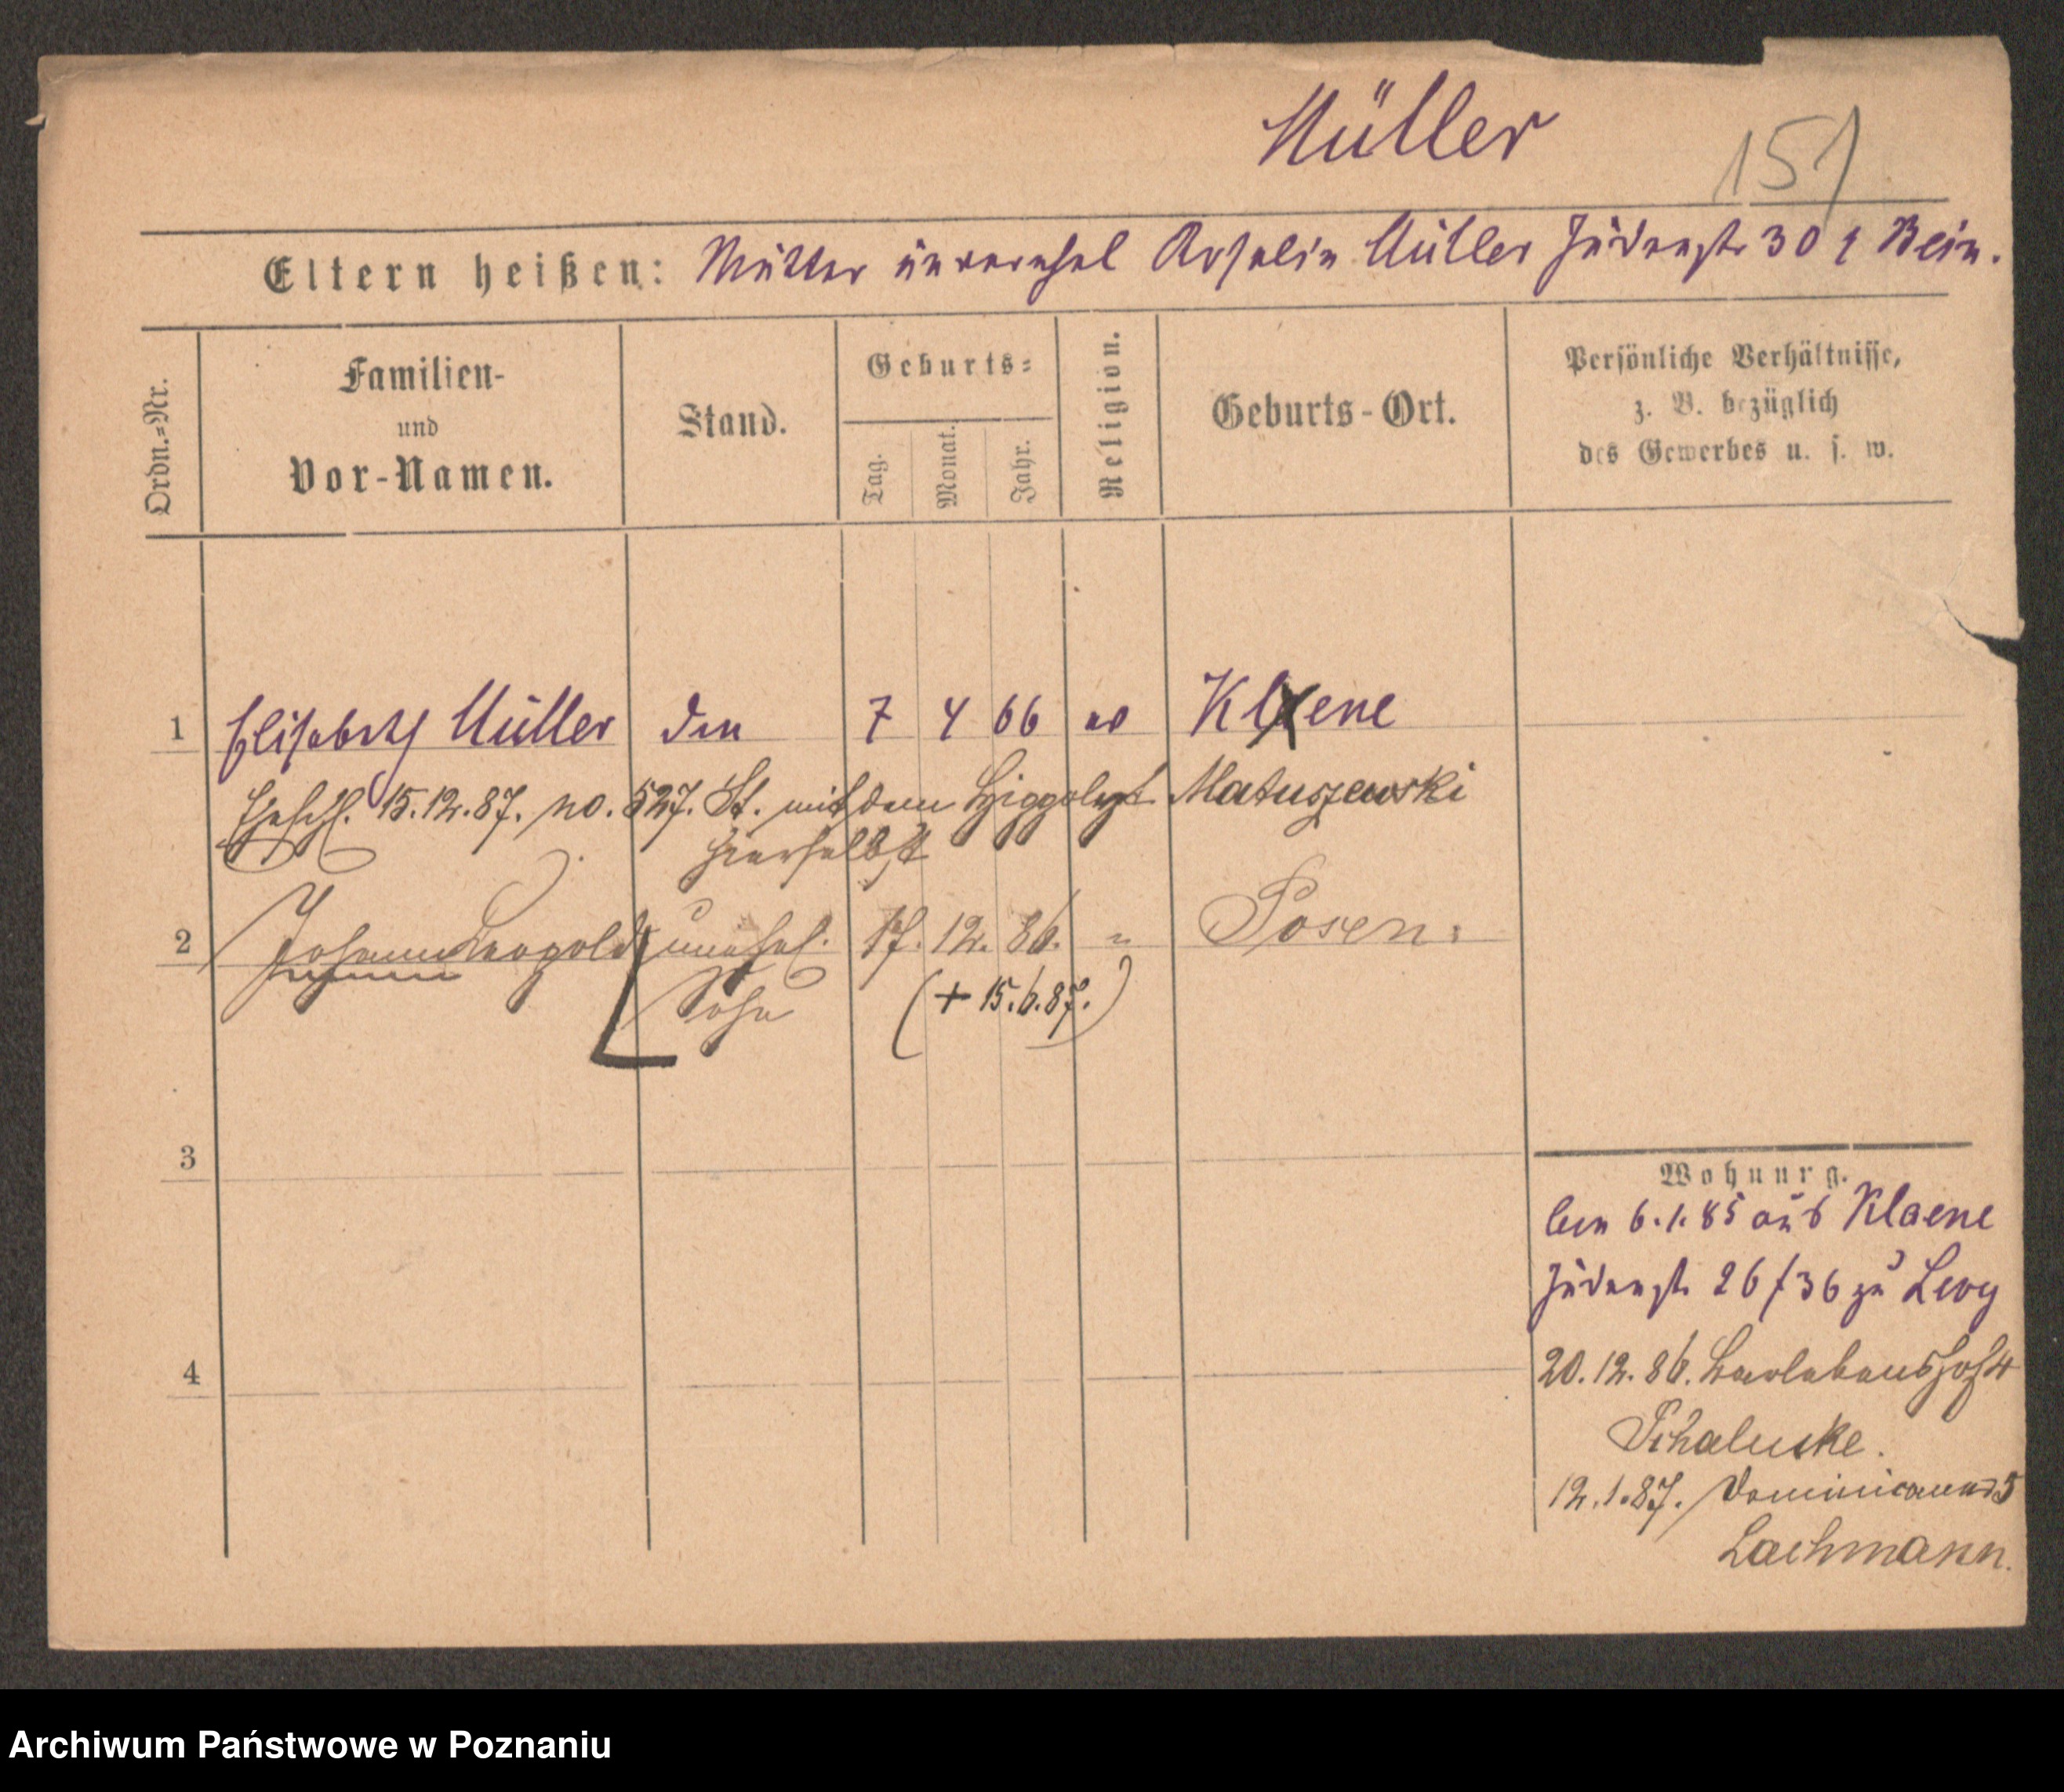 Müller
151
Eltern heißen: Mutter unverehel Rosalie Müller Judenstr 30 b Bein.
Ordn.-Nr.
Familien-
und
Vor-Namen.
Stand.
Geburts-
Tag.
Monat.
Jahr.
Religion.
Geburts-Ort.
Persönliche Verhältnisse,
z. B. bezüglich
des Gewerbes u. s. w.
1 Elisabeth Müller 7 4 66 ev Klxene
Eheschl. 15.12.87. no. 527. St. mit dem Matuszewski
hierselbst
2 Johann Leopold unehel. 17. 12. 86. " Posen.
Sohn (+ 15.6.87.)
3
4
Wohnung.
6.1.85 aus Klaene
Judenstr 26/36 zu Levy
20.12.86.
Schaluske.
12.1.87. Dominicaner 5
Lachmann.
Archiwum Państwowe w Poznaniu